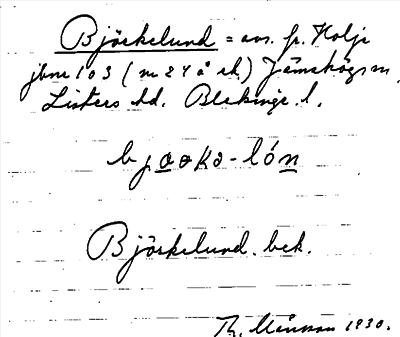 Björkelund = avs. fr. Holje
jbnr 103 (nr 24 å ek) Jämshögs sn,
Listers hd. Blekinge l.
bjɑɵkə-lón
Björkelund. bek.
Th. Månsson 1930.